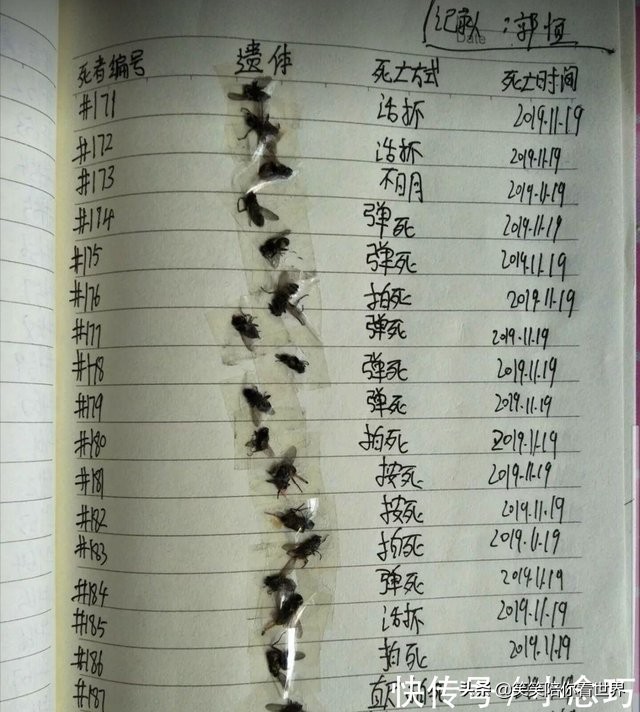 记录人:郭恒
Date
死者编号 遗体 死亡方式 死亡时间
#171 活抓 2019.11.19
#172 活抓 2019.11.19
#173 不明 2019.11.19
#174 弹死 2019.11.19
#175 弹死 2019.11.19
#176 拍死 2019.11.19
#177 弹死 2019.11.19
#178 弹死 2019.11.19
#179 弹死 2019.11.19
#180 拍死 2019.11.19
#181 按死 2019.11.19
#182 按死 2019.11.19
#183 拍死 2019.11.19
#184 弹死 2019.11.19
#185 活抓 2019.11.19
#186 拍死 2019.11.19
#187
快传号/
头条@笑笑陪你看世界